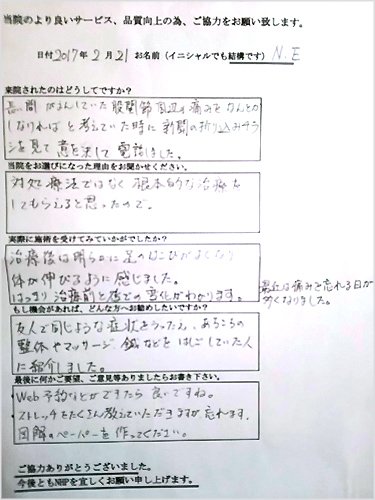 当院のより良いサービス、品質向上の為、ご協力をお願い致します。
日付2017年2月21 お名前（イニシャルでも結構です）N.E
来院されたのはどうしてですか？
長い間 がまんしていた股関節周辺の痛みをなんとか
しなければと考えていた時に新聞の折り込みチラ
シを見て意を決して電話しました。
当院をお選びになった理由をお聞かせください。
対処療法ではなく根本的な治療を
してもらえると思ったので。
実際に施術を受けてみていかがでしたか？
治療後は明らかに足のはこびがよくなり
体が伸びるように感じました。
はっきり治療前と後との変化がわかります。
最近は痛みを忘れる日が
多くなりました。
もし機会があれば、どんな方へお勧めしたいですか？
友人で同じような症状をうったえ、あちこちの
整体やマッサージ、鍼などをはしごしていた人
に紹介しました。
最後に何かご要望、ご意見等ありましたらお書き下さい。
Web予約などができたら良いですね。
ストレッチをたくさん教えていただきますが忘れます。
図解のペーパーを作ってください。
ご協力ありがとうございました。
今後ともNHPを宜しくお願い申し上げます。